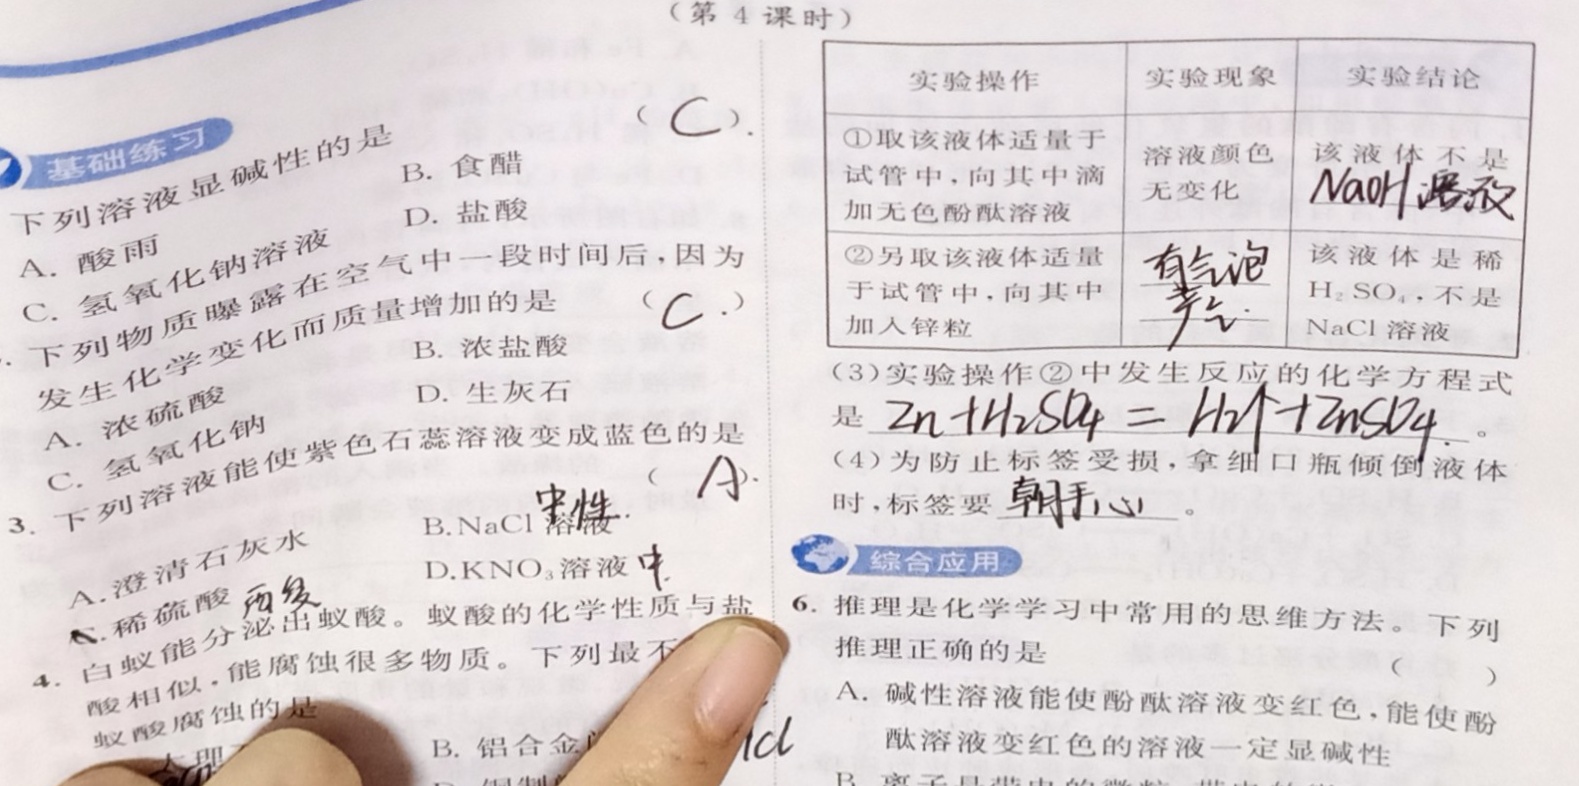 (第4课时)
基础练习
下列溶液显碱性的是
( C ).
A. 酸雨
B. 食醋
C. 氢氧化钠溶液
D. 盐酸
下列物质曝露在空气中一段时间后,因为
发生化学变化而质量增加的是
( C. )
A. 浓硫酸
B. 浓盐酸
C. 氢氧化钠
D. 生灰石
3. 下列溶液能使紫色石蕊溶液变成蓝色的是
( A).
A.澄清石灰水
B.NaCl 溶液
中性.
C.稀硫酸
D.KNO₃溶液 中.
4. 白蚁能分泌出蚁酸。蚁酸的化学性质与盐
酸相似,能腐蚀很多物质。下列最不
蚁酸腐蚀的是
B. 铝合金
实验操作 实验现象 实验结论
①取该液体适量于
试管中,向其中滴
加无色酚酞溶液
溶液颜色
无变化
该液体不是
NaOH 溶液
②另取该液体适量
于试管中,向其中
加入锌粒
有气泡
该液体是稀
H₂SO₄,不是
NaCl 溶液
(3)实验操作②中发生反应的化学方程式
是 Zn+H₂SO₄=H₂↑+ZnSO₄. 。
(4)为防止标签受损,拿细口瓶倾倒液体
时,标签要 朝手心 。
综合应用
6. 推理是化学学习中常用的思维方法。下列
推理正确的是 ( )
A. 碱性溶液能使酚酞溶液变红色,能使酚
酞溶液变红色的溶液一定显碱性